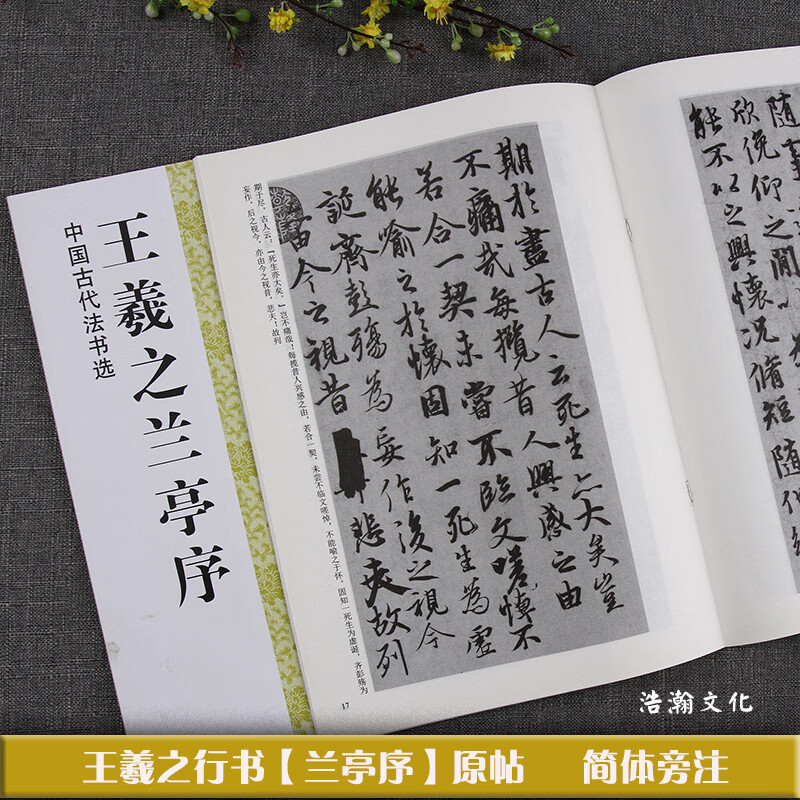 王羲之兰亭序
中国古代法书选
隨事
欣俛仰之間
能不以之興懷況脩短隨化終
期於盡古人云死生亦大矣豈
不痛哉每攬昔人興感之由
若合一契未嘗不臨文嗟悼不
能喻之於懷固知一死生為虛
誕齊彭殤為妄作後之視今
由今之視昔悲夫故列
期于尽。古人云：「死生亦大矣。」岂不痛哉！每揽昔人兴感之由，若合一契，未尝不临文嗟悼，不能喻之于怀。固知一死生为虚诞，齐彭殇为
妄作。后之视今，亦由今之视昔，悲夫！故列
17
浩瀚文化
王羲之行书【兰亭序】原帖 简体旁注